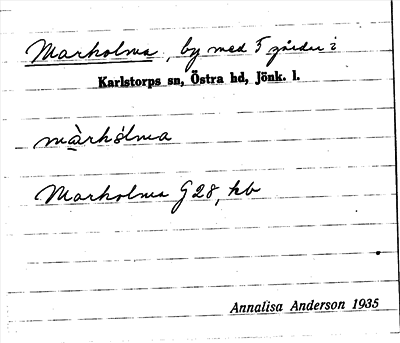 Markolma, by med 5 gårdar i
Karlstorps sn, Östra hd, Jönk. l.
màrkólma
Markolma G28, kb
Annalisa Anderson 1935